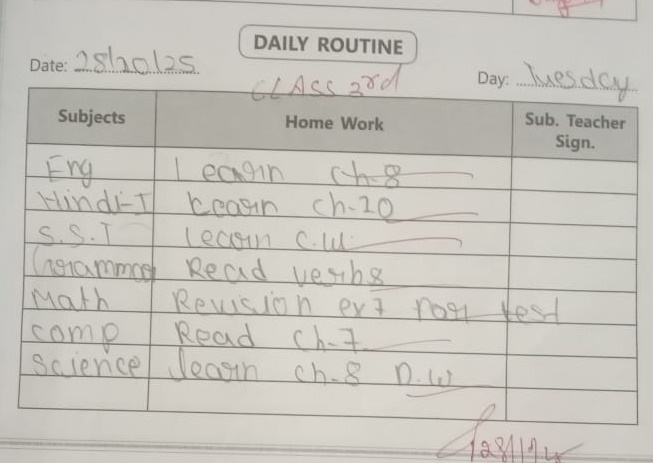 DAILY ROUTINE
Date: 28/10/25 Day: Tuesday
CLASS 3rd
Subjects Home Work Sub. Teacher Sign.
Eng Learn Ch-8
Hindi-I Learn Ch-10
S.S.T Learn C.W.
Grammar Read verbs
Math Revision ex7 for test
comp Read Ch-7
Science Learn Ch-8 D.W